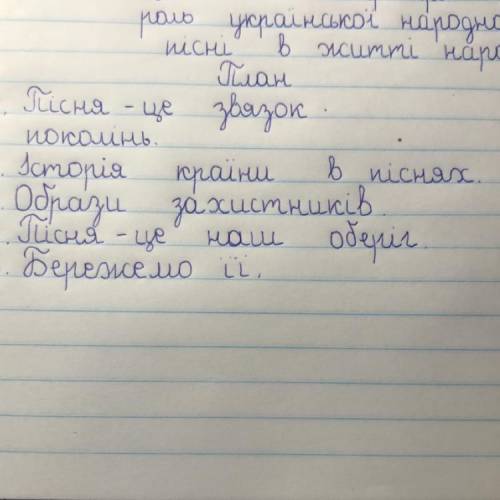 роль української народно
пісні в житті наро
План
. Пісня - це звязок
поколінь.
. Історія країни в піснях.
. Образи захистників.
. Пісня - це наш оберіг.
. Бережемо її.